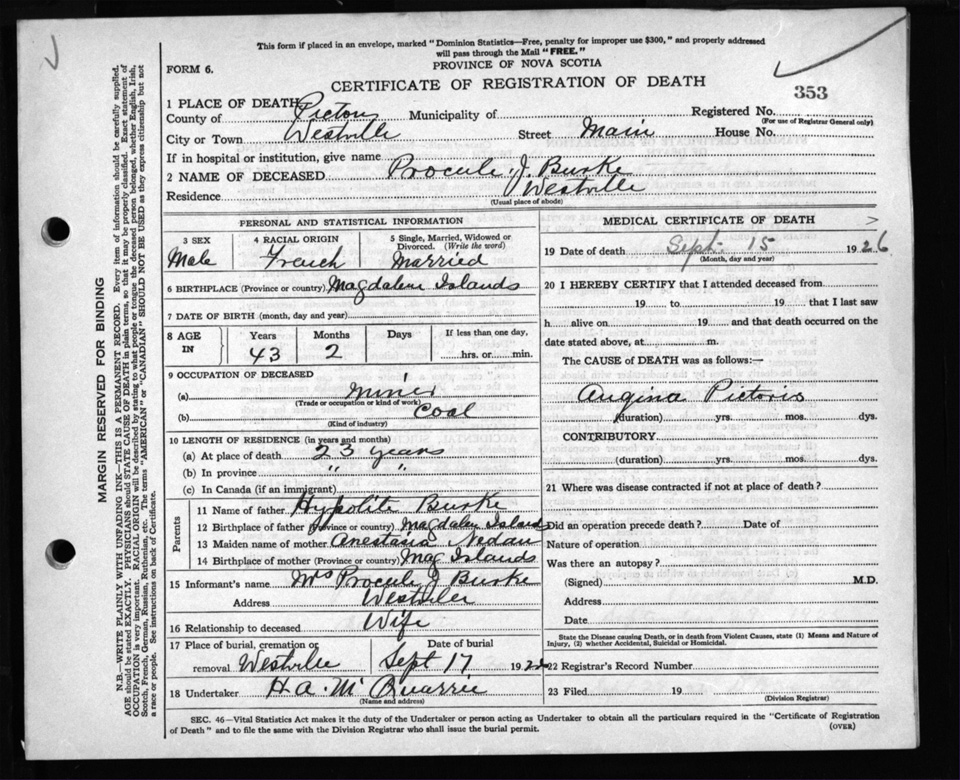 This form if placed in an envelope, marked "Dominion Statistics—Free, penalty for improper use $300," and properly addressed
will pass through the Mail "FREE."
PROVINCE OF NOVA SCOTIA
FORM 6.
CERTIFICATE OF REGISTRATION OF DEATH
353
1 PLACE OF DEATH
County of Pictou Municipality of Registered No.
(For use of Registrar General only)
City or Town Westville Street Main House No.
If in hospital or institution, give name
2 NAME OF DECEASED Procule J. Burke
Residence Westville
(Usual place of abode)
PERSONAL AND STATISTICAL INFORMATION
3 SEX 4 RACIAL ORIGIN 5 Single, Married, Widowed or
Divorced. (Write the word)
Male French Married
6 BIRTHPLACE (Province or country) Magdalen Islands
7 DATE OF BIRTH (month, day and year)
8 AGE IN Years Months Days If less than one day,
43 2 hrs. or min.
9 OCCUPATION OF DECEASED
(a) Miner
(Trade or occupation or kind of work)
(b) Coal
(Kind of industry)
10 LENGTH OF RESIDENCE (in years and months)
(a) At place of death 23 years
(b) In province " "
(c) In Canada (if an immigrant)
Parents
11 Name of father Hypolite Burke
12 Birthplace of father (Province or country) Magdalen Islands
13 Maiden name of mother
14 Birthplace of mother (Province or country) Mag Islands
15 Informant's name Mrs Procule J Burke
Address
16 Relationship to deceased Wife
17 Place of burial, cremation or Date of burial
removal Westville Sept 17 192
18 Undertaker H. A. McQuarrie
(Name and address)
MEDICAL CERTIFICATE OF DEATH
19 Date of death Sept. 15 1926
(Month, day and year)
20 I HEREBY CERTIFY that I attended deceased from
19 to 19 that I last saw
h alive on 19 and that death occurred on the
date stated above, at m.
The CAUSE of DEATH was as follows:—
Angina Pictoris
(duration) yrs. mos. dys.
CONTRIBUTORY
(duration) yrs. mos. dys.
21 Where was disease contracted if not at place of death?
Did an operation precede death? Date of
Nature of operation
Was there an autopsy?
(Signed) M.D.
Address
Date
State the Disease causing Death, or in death from Violent Causes, state (1) Means and Nature of
Injury, (2) whether Accidental, Suicidal or Homicidal.
22 Registrar's Record Number
23 Filed 19
(Division Registrar)
SEC. 46—Vital Statistics Act makes it the duty of the Undertaker or person acting as Undertaker to obtain all the particulars required in the "Certificate of Registration
of Death" and to file the same with the Division Registrar who shall issue the burial permit. (OVER)
MARGIN RESERVED FOR BINDING
N.B.—WRITE PLAINLY WITH UNFADING INK—THIS IS A PERMANENT RECORD. Every item of information should be carefully supplied.
AGE should be stated EXACTLY. PHYSICIANS should STATE CAUSE OF DEATH in plain terms, so that it may be properly classified. Exact statement of
OCCUPATION is very important. RACIAL ORIGIN will be described by stating to what people or tongue the deceased person belonged, whether English, Irish,
Scotch, French, German, Russian, Ruthenian, etc. The terms "AMERICAN" or "CANADIAN" SHOULD NOT BE USED as they express citizenship but not
a race or people. See instructions on back of Certificate.